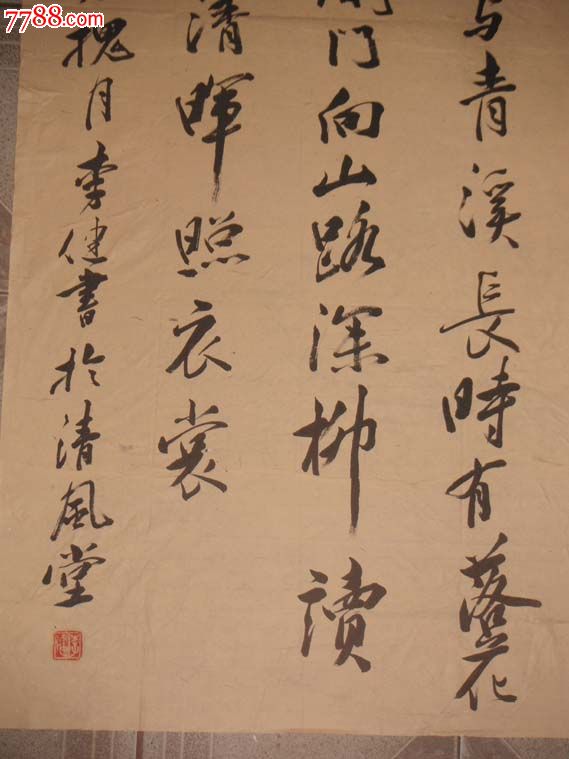 7788.com
与青溪長時有落花
门向山路深柳讀
清暉照衣裳
槐月李健書於清風堂